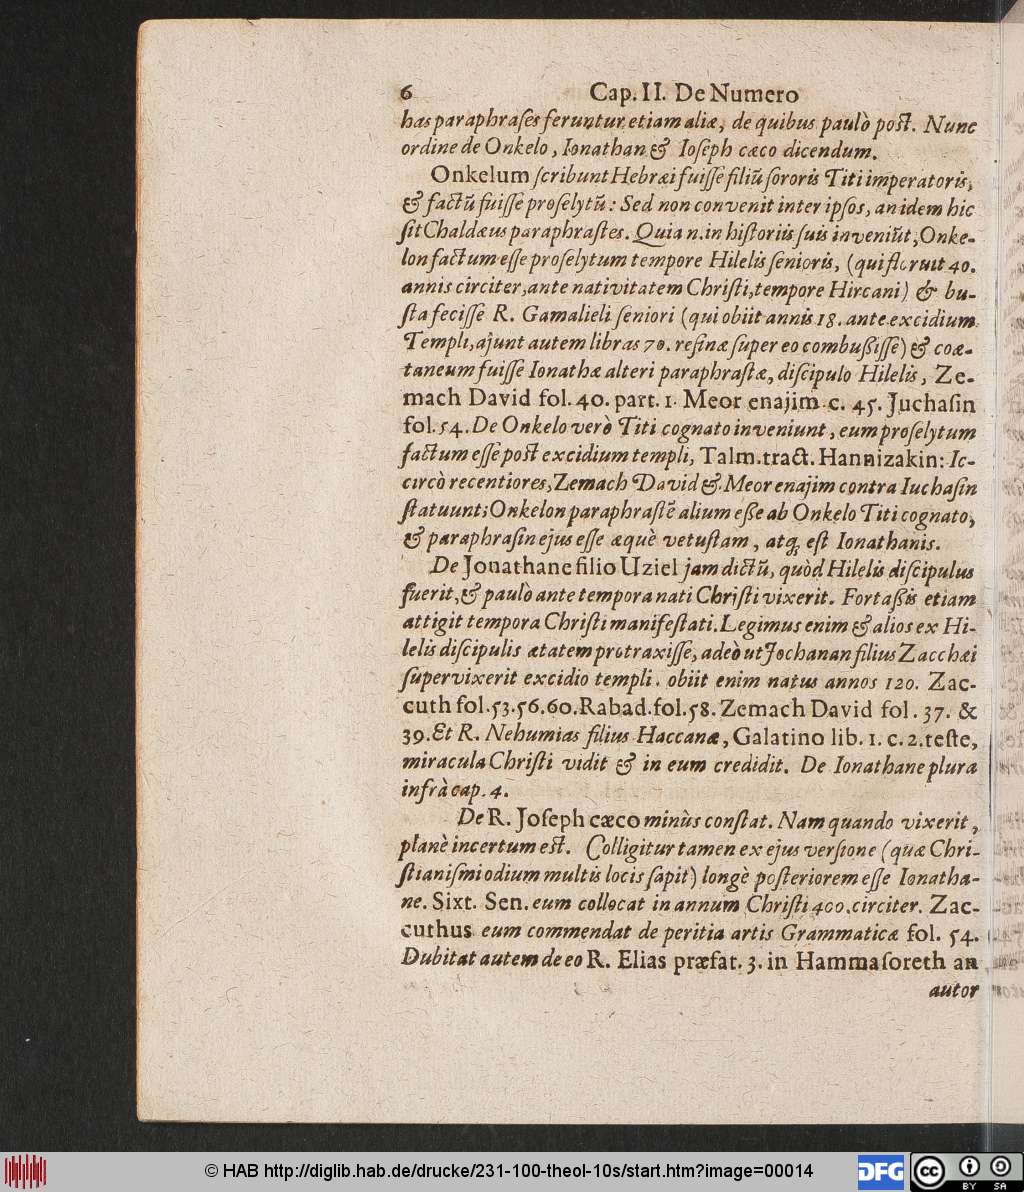 6 Cap. II. De Numero
has paraphraſes feruntur etiam aliæ, de quibus paulò poſt. Nunc
ordine de Onkelo, Ionathan & Ioſeph cæco dicendum.
Onkelum ſcribunt Hebræi fuiſſe filiũ ſororis Titi imperatoris,
& factũ fuiſſe proſelytũ: Sed non convenit inter ipſos, an idem hic
ſit Chaldæus paraphraſtes. Quia n. in hiſtoriis ſuis inveniũt, Onke-
lon factum eſſe proſelytum tempore Hilelis ſenioris, (qui floruit 40.
annis circiter, ante nativitatem Chriſti, tempore Hircani) & bu-
ſta feciſſe R. Gamalieli ſeniori (qui obiit annis 18. ante excidium
Templi, ajunt autem libras 70. reſinæ ſuper eo combußiſſe) & coæ-
taneum fuiſſe Ionathæ alteri paraphraſtæ, diſcipulo Hilelis, Ze-
mach David fol. 40. part. 1. Meor enajim c. 45. Juchaſin
fol. 54. De Onkelo verò Titi cognato inveniunt, eum proſelytum
factum eſſe poſt excidium templi, Talm. tract. Hannizakin: Ic-
circò recentiores, Zemach David & Meor enajim contra Iuchaſin
ſtatuunt; Onkelon paraphraſtẽ alium eße ab Onkelo Titi cognato,
& paraphraſin ejus eſſe æquè vetuſtam, atq; eſt Ionathanis.
De Jonathane filio Uziel jam dictũ, quòd Hilelis diſcipulus
fuerit, & paulò ante tempora nati Chriſti vixerit. Fortaßis etiam
attigit tempora Chriſti manifeſtati. Legimus enim & alios ex Hi-
lelis diſcipulis ætatem protraxiſſe, adeò ut Jochanan filius Zacchæi
ſupervixerit excidio templi. obiit enim natus annos 120. Zac-
cuth fol. 53. 56. 60. Rabad. fol. 58. Zemach David fol. 37. &
39. Et R. Nehumias filius Haccanæ, Galatino lib. 1. c. 2. teſte,
miracula Chriſti vidit & in eum credidit. De Ionathane plura
infrà cap. 4.
De R. Joſeph cæco minùs conſtat. Nam quando vixerit,
planè incertum eſt. Colligitur tamen ex ejus verſione (quæ Chri-
ſtianiſmi odium multis locis ſapit) longè poſteriorem eſſe Ionatha-
ne. Sixt. Sen. eum collocat in annum Chriſti 400. circiter. Zac-
cuthus eum commendat de peritia artis Grammaticæ fol. 54.
Dubitat autem de eo R. Elias præfat. 3. in Hammaſoreth an
autor
© HAB http://diglib.hab.de/drucke/231-100-theol-10s/start.htm?image=00014
DFG
cc BY SA